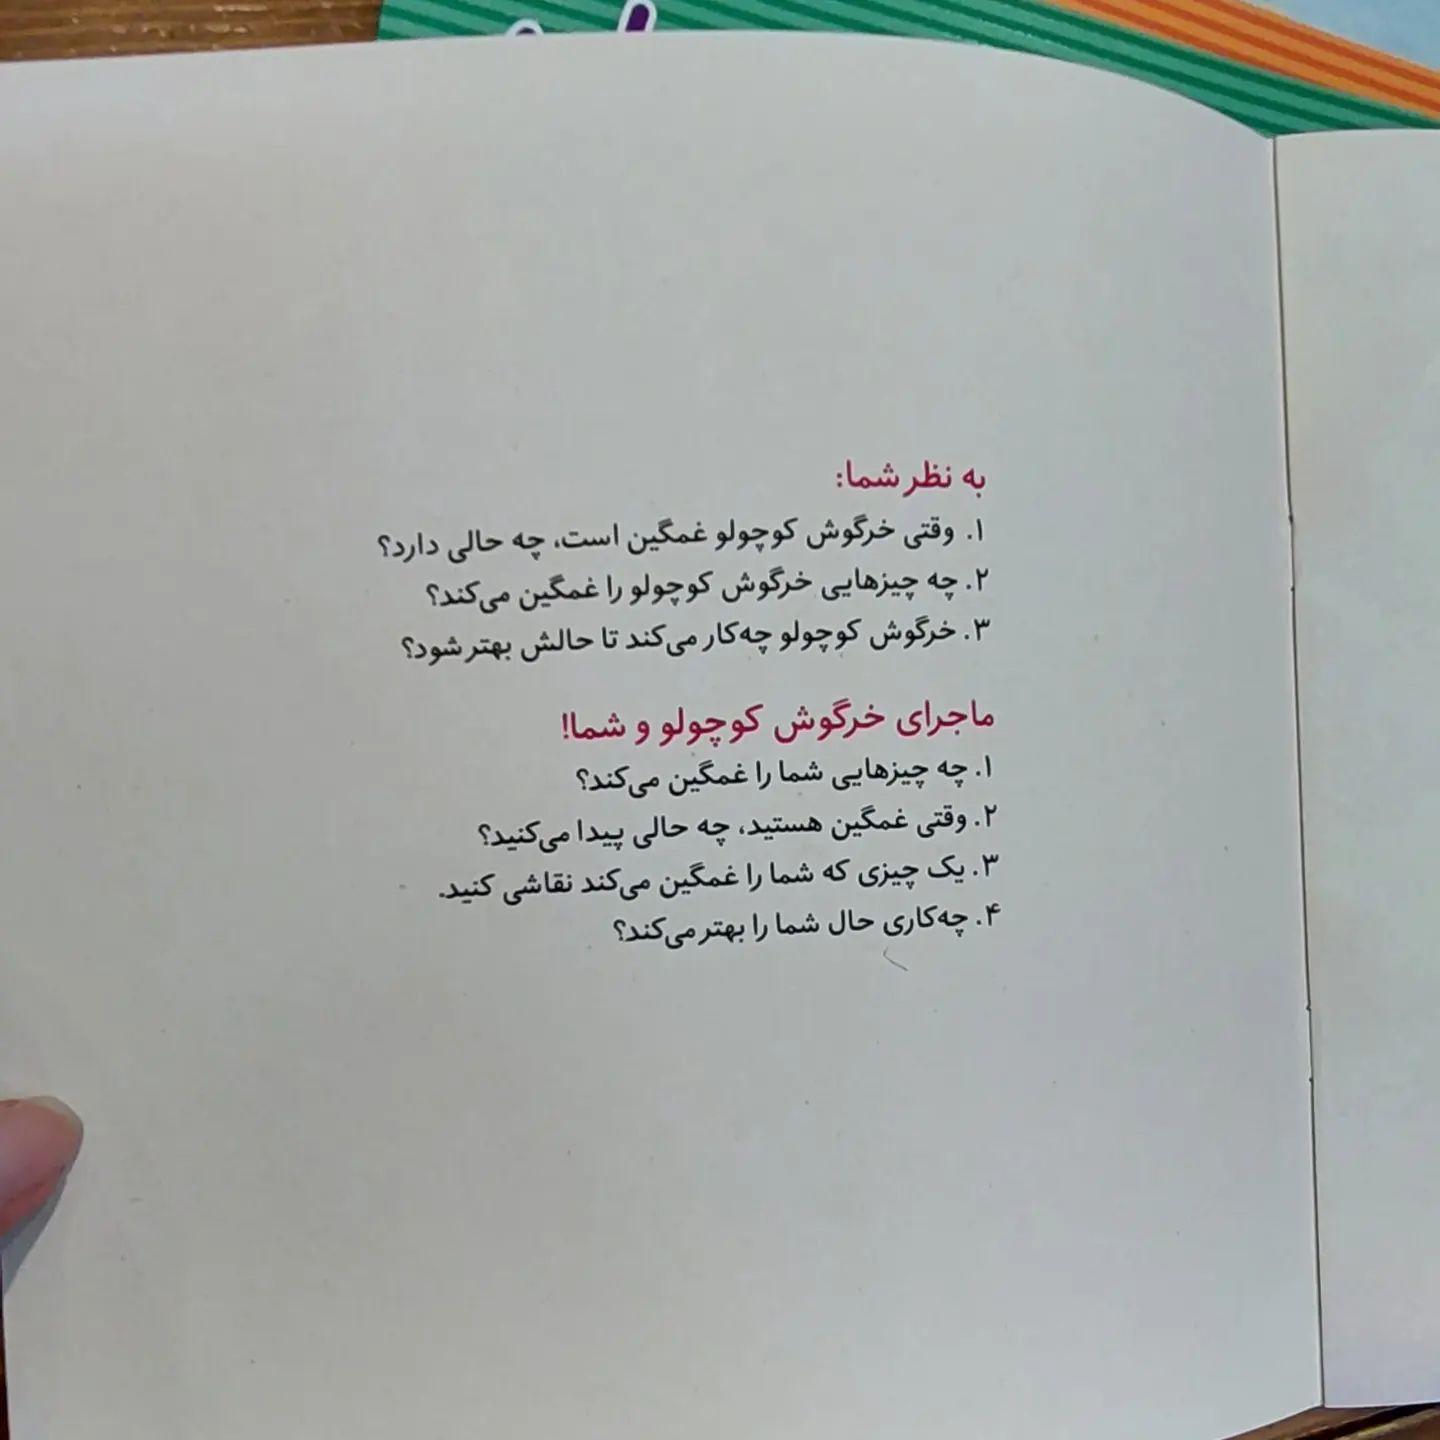 به نظر شما:
۱. وقتی خرگوش کوچولو غمگین است، چه حالی دارد؟
۲. چه چیزهایی خرگوش کوچولو را غمگین می‌کند؟
۳. خرگوش کوچولو چه‌کار می‌کند تا حالش بهتر شود؟
ماجرای خرگوش کوچولو و شما!
۱. چه چیزهایی شما را غمگین می‌کند؟
۲. وقتی غمگین هستید، چه حالی پیدا می‌کنید؟
۳. یک چیزی که شما را غمگین می‌کند نقاشی کنید.
۴. چه‌کاری حال شما را بهتر می‌کند؟